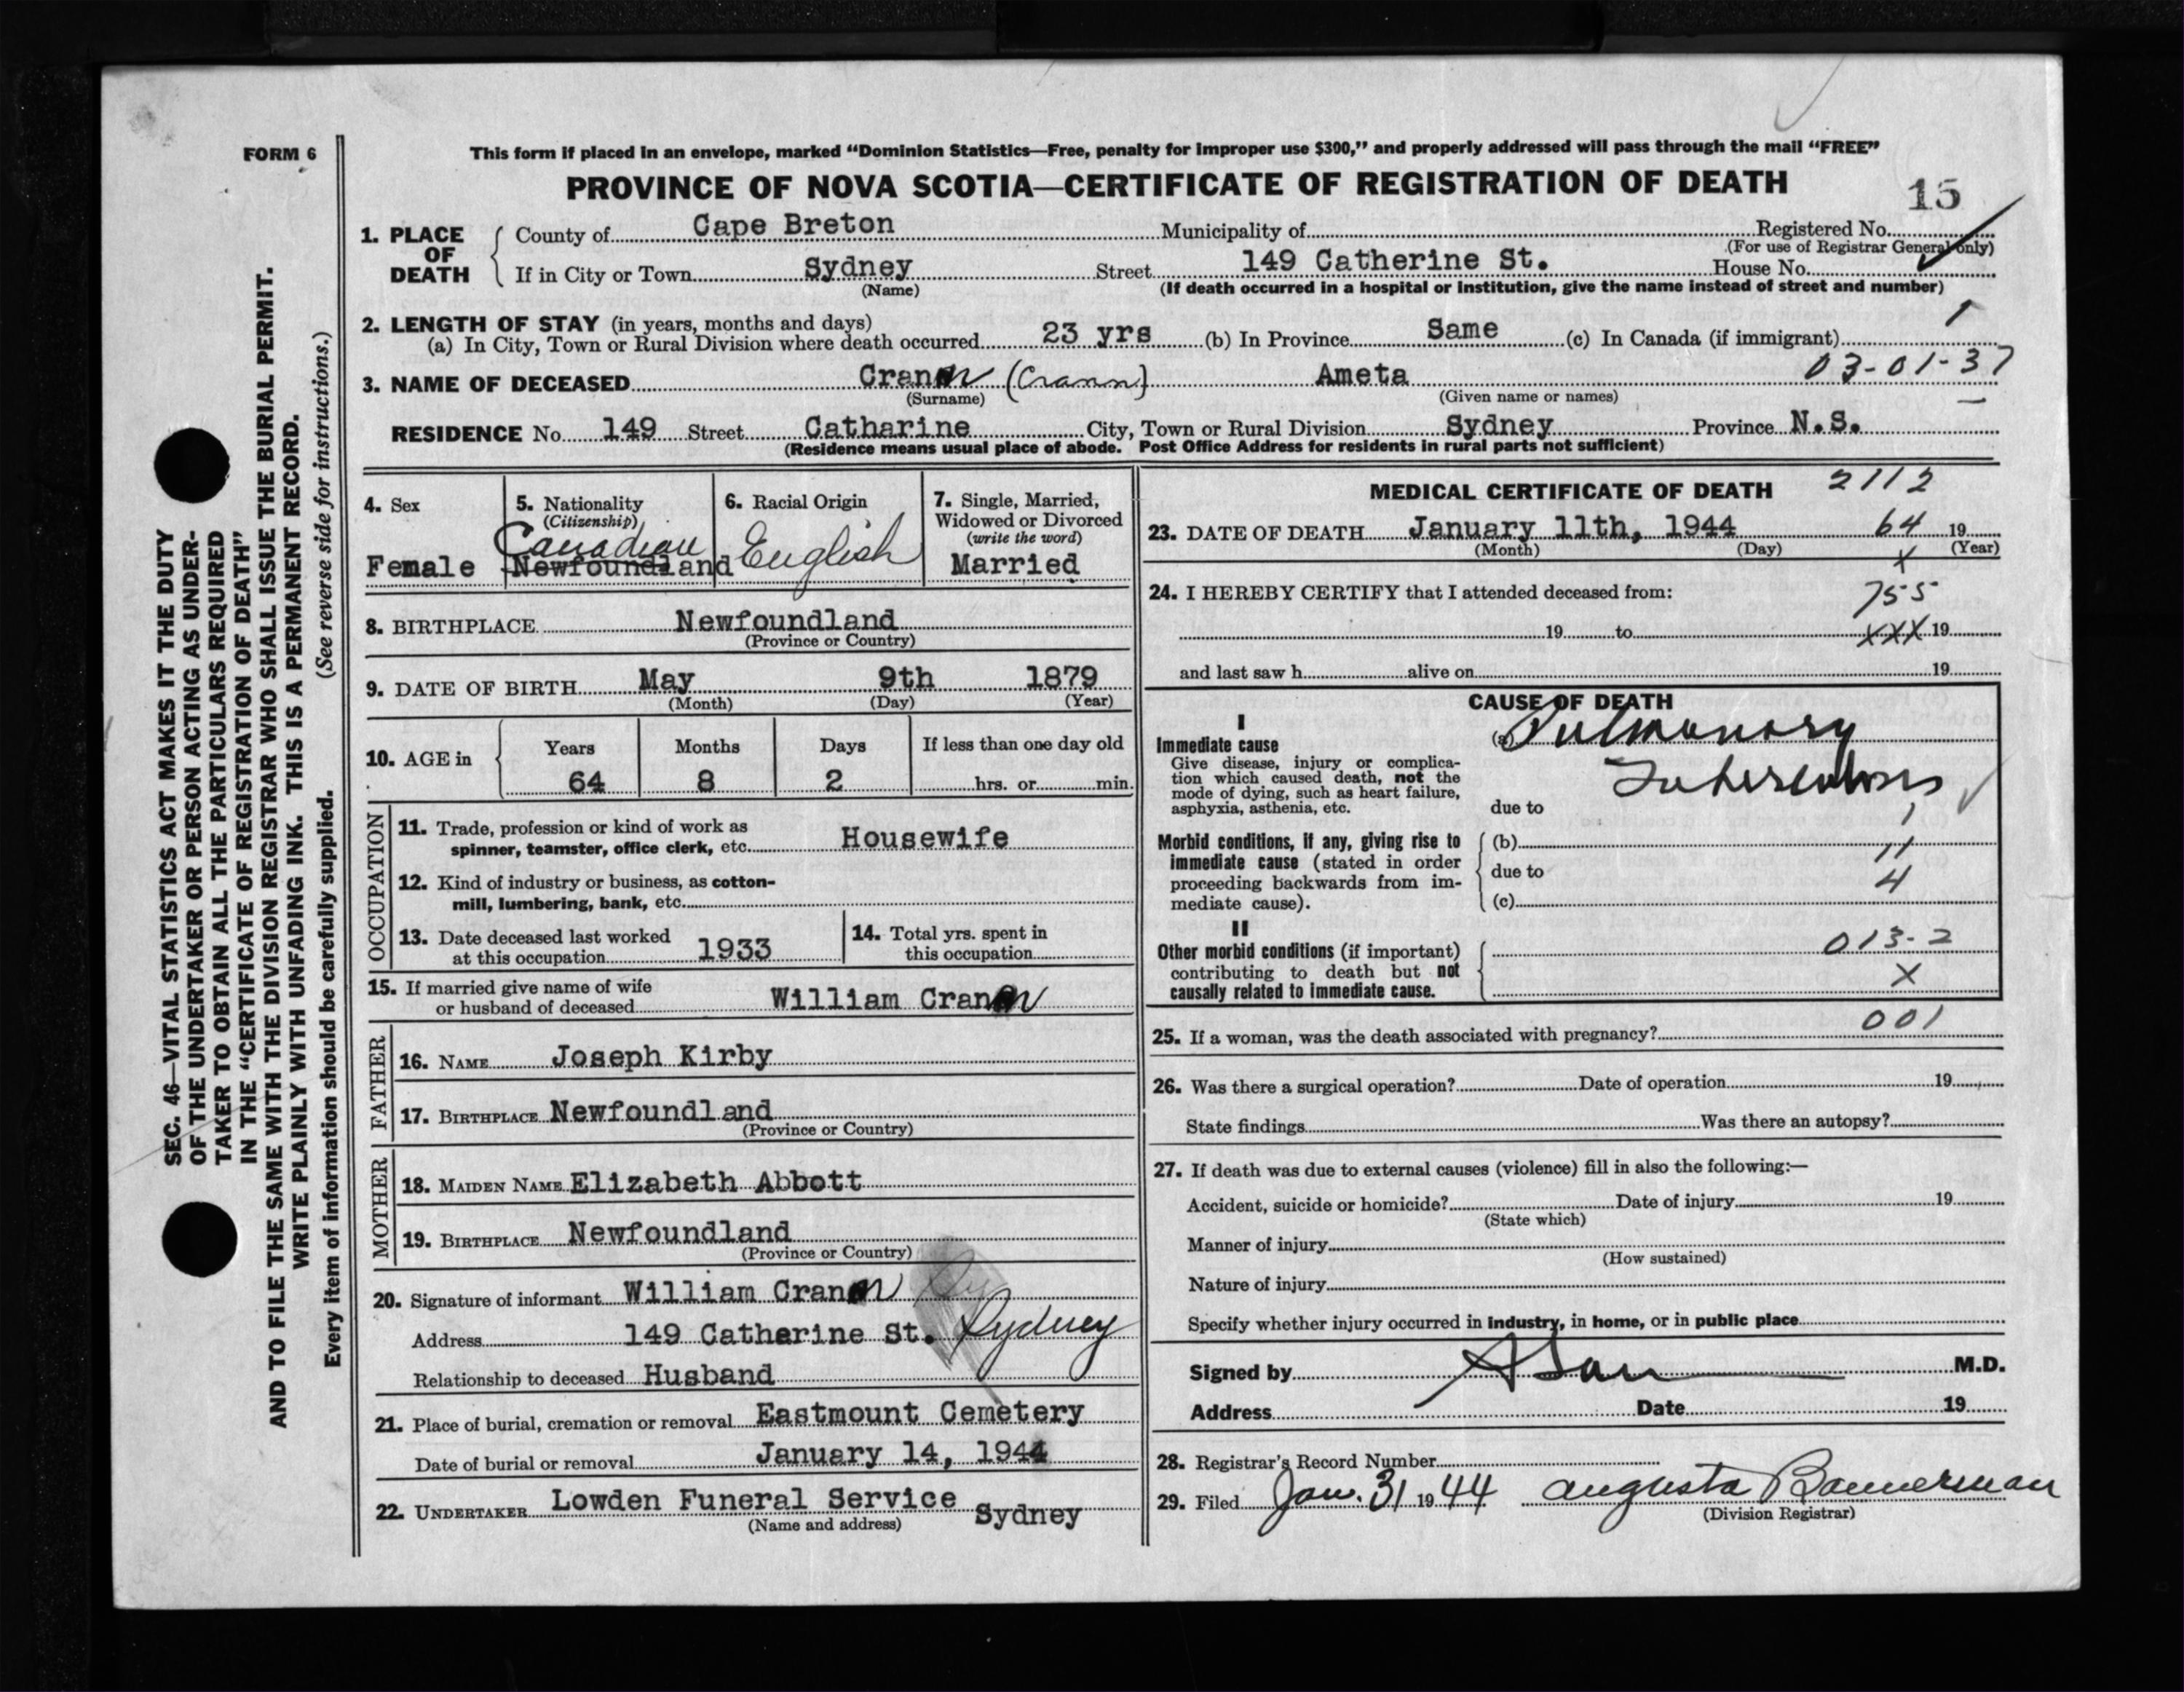 FORM 6
This form if placed in an envelope, marked “Dominion Statistics—Free, penalty for improper use $300,” and properly addressed will pass through the mail “FREE”
PROVINCE OF NOVA SCOTIA—CERTIFICATE OF REGISTRATION OF DEATH
15
1. PLACE OF DEATH
County of Cape Breton Municipality of Registered No.
(For use of Registrar General only)
If in City or Town Sydney Street 149 Catherine St. House No.
(Name) (If death occurred in a hospital or institution, give the name instead of street and number)
1
2. LENGTH OF STAY (in years, months and days)
(a) In City, Town or Rural Division where death occurred 23 yrs (b) In Province Same (c) In Canada (if immigrant)
03-01-37
3. NAME OF DECEASED Crann (Crann) Ameta
(Surname) (Given name or names)
RESIDENCE No. 149 Street Catharine City, Town or Rural Division Sydney Province N.S.
(Residence means usual place of abode. Post Office Address for residents in rural parts not sufficient)
4. Sex
Female
5. Nationality
(Citizenship)
Canadian
Newfoundland
6. Racial Origin
English
7. Single, Married,
Widowed or Divorced
(write the word)
Married
8. BIRTHPLACE Newfoundland
(Province or Country)
9. DATE OF BIRTH May 9th 1879
(Month) (Day) (Year)
10. AGE in
Years Months Days If less than one day old
64 8 2 hrs. or min.
OCCUPATION
11. Trade, profession or kind of work as
spinner, teamster, office clerk, etc. Housewife
12. Kind of industry or business, as cotton-
mill, lumbering, bank, etc.
13. Date deceased last worked
at this occupation 1933
14. Total yrs. spent in
this occupation
15. If married give name of wife
or husband of deceased William Crann
FATHER
16. NAME Joseph Kirby
17. BIRTHPLACE Newfoundland
(Province or Country)
MOTHER
18. MAIDEN NAME Elizabeth Abbott
19. BIRTHPLACE Newfoundland
(Province or Country)
20. Signature of informant William Crann Sy
Address 149 Catharine St. Sydney
Relationship to deceased Husband
21. Place of burial, cremation or removal Eastmount Cemetery
Date of burial or removal January 14, 1944
22. UNDERTAKER Lowden Funeral Service Sydney
(Name and address)
MEDICAL CERTIFICATE OF DEATH 2112
23. DATE OF DEATH January 11th, 1944 64 19
(Month) (Day) (Year)
X
24. I HEREBY CERTIFY that I attended deceased from: 755
19 to XXX 19
and last saw h alive on 19
CAUSE OF DEATH
I
Immediate cause
Give disease, injury or complica-
tion which caused death, not the
mode of dying, such as heart failure,
asphyxia, asthenia, etc.
(a) Pulmonary
Tuberculosis
due to 1
Morbid conditions, if any, giving rise to
immediate cause (stated in order
proceeding backwards from im-
mediate cause).
(b) 11
due to 4
(c)
II
Other morbid conditions (if important)
contributing to death but not
causally related to immediate cause.
013-2
X
25. If a woman, was the death associated with pregnancy? 001
26. Was there a surgical operation? Date of operation 19
State findings Was there an autopsy?
27. If death was due to external causes (violence) fill in also the following:—
Accident, suicide or homicide? Date of injury 19
(State which)
Manner of injury
(How sustained)
Nature of injury
Specify whether injury occurred in industry, in home, or in public place
Signed by M.D.
Address Date 19
28. Registrar's Record Number
29. Filed Jan. 31 1944 Augusta Bannerman
(Division Registrar)
SEC. 46—VITAL STATISTICS ACT MAKES IT THE DUTY
OF THE UNDERTAKER OR PERSON ACTING AS UNDER-
TAKER TO OBTAIN ALL THE PARTICULARS REQUIRED
IN THE “CERTIFICATE OF REGISTRATION OF DEATH”
AND TO FILE THE SAME WITH THE DIVISION REGISTRAR WHO SHALL ISSUE THE BURIAL PERMIT.
WRITE PLAINLY WITH UNFADING INK. THIS IS A PERMANENT RECORD.
Every item of information should be carefully supplied. (See reverse side for instructions.)